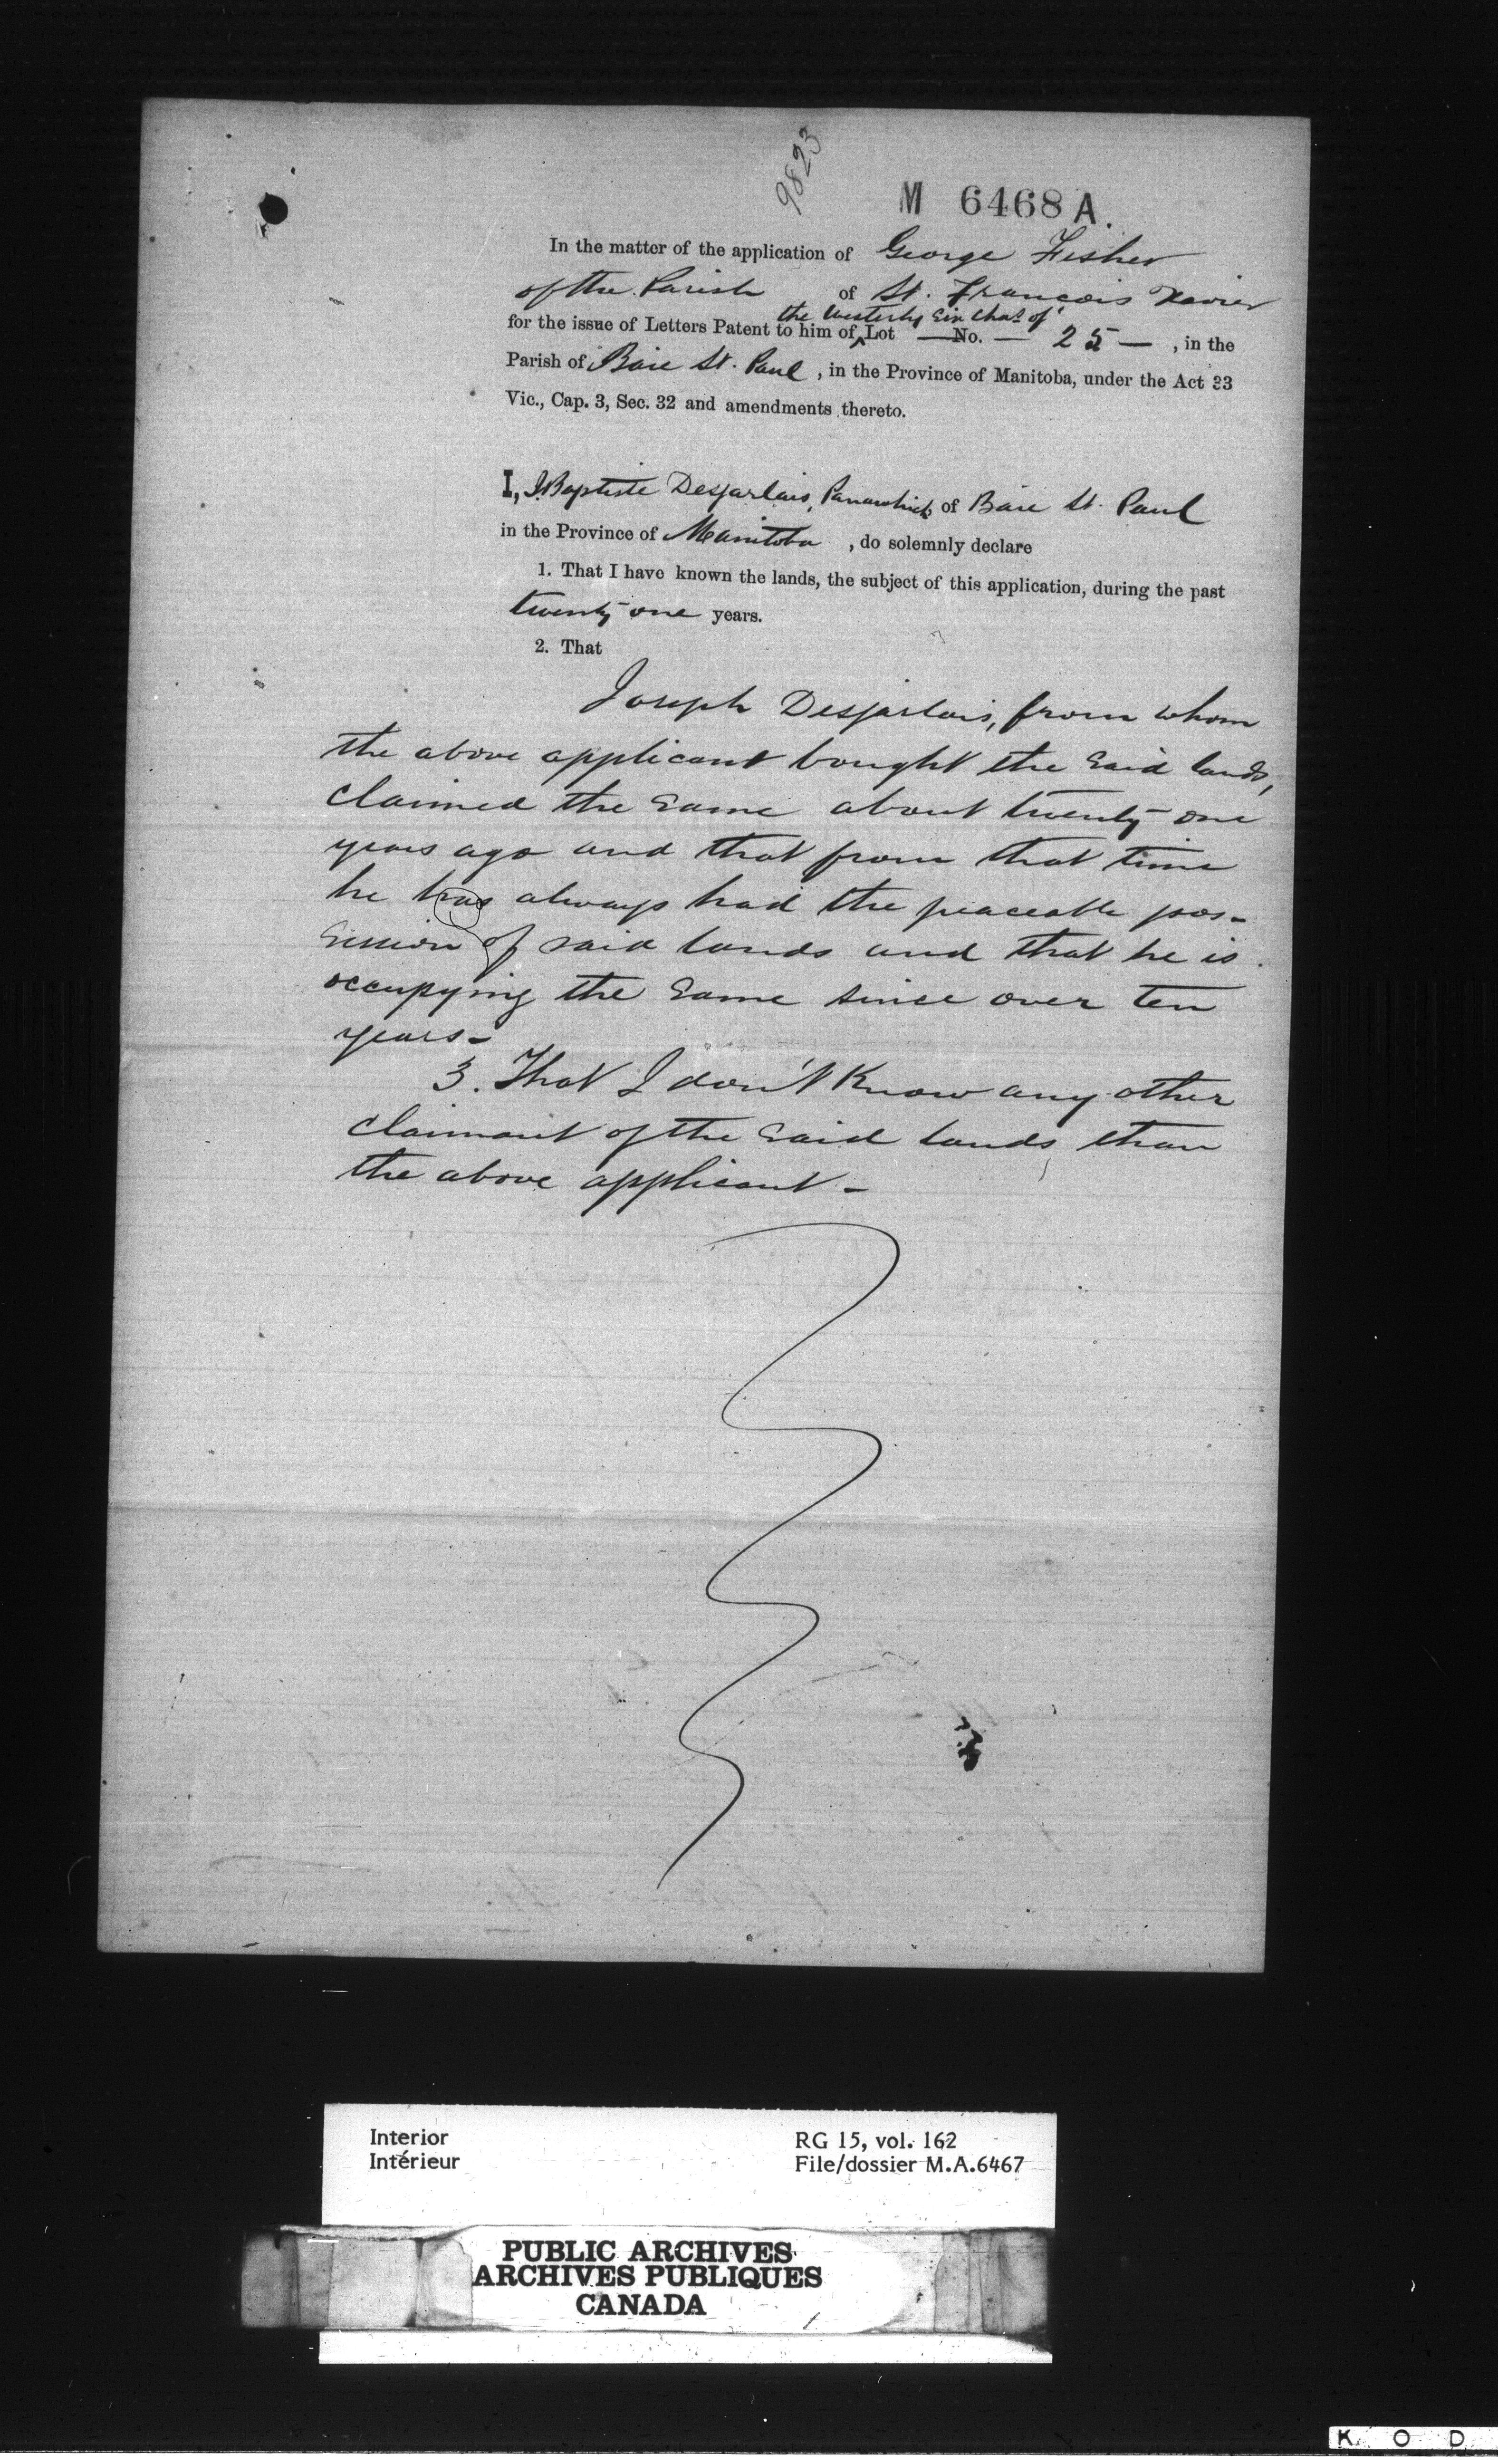 9823
M 6468 A.
In the matter of the application of George Fisher
of the Parish of St. François Xavier
the Westerly Six Chas of
for the issue of Letters Patent to him of ^ Lot — No. — 25 — , in the
Parish of Baie St. Paul , in the Province of Manitoba, under the Act 33
Vic., Cap. 3, Sec. 32 and amendments thereto.
I, J. Baptiste Desjarlais, of Baie St. Paul
in the Province of Manitoba , do solemnly declare
1. That I have known the lands, the subject of this application, during the past
twenty-one years.
2. That
Joseph Desjarlais, from whom
the above applicant bought the said lands,
claimed the same about twenty-one
years ago and that from that time
he has always had the peaceable pos-
session of said lands and that he is
occupying the same since over ten
years-
3. That I don't Know any other
claimant of the said lands than
the above applicant-
Interior
Intérieur
RG 15, vol. 162
File/dossier M.A.6467
PUBLIC ARCHIVES
ARCHIVES PUBLIQUES
CANADA
K O D